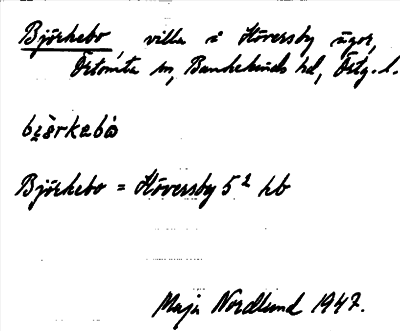 Björkebo, villa i Höversby ägor,
Örtomta sn, Bankekinds hd, Östg. l.
bjö̀rkabó
Björkebo = Höversby 5² hb
Maja Nordlund 1947.